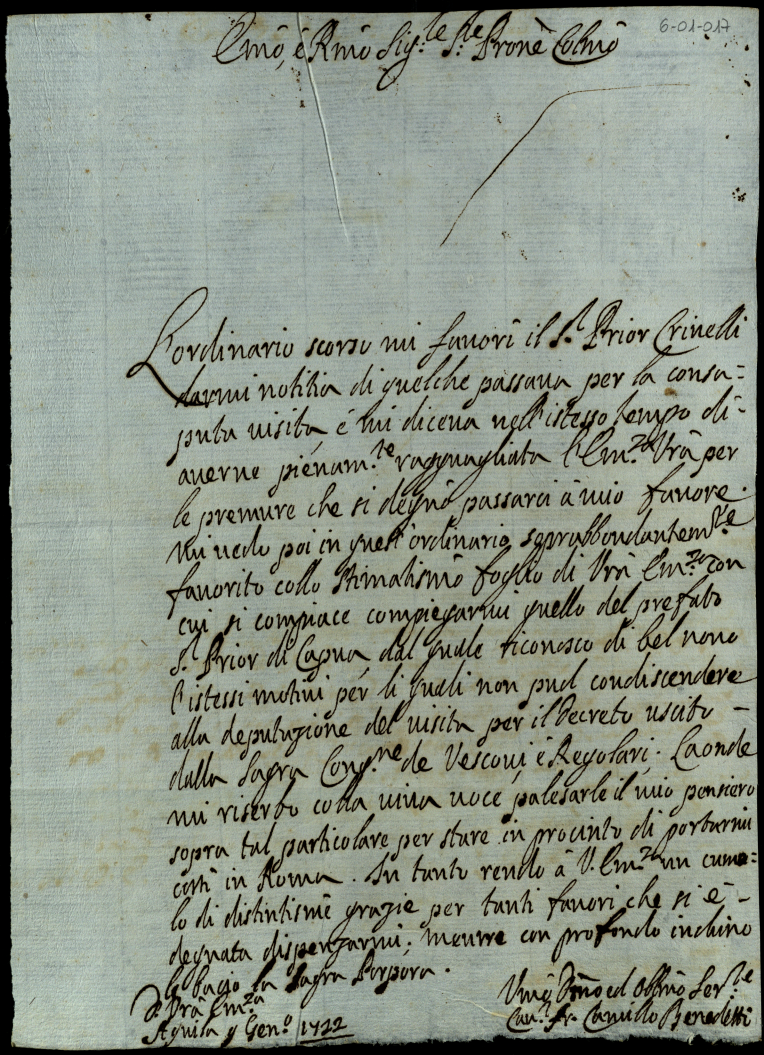 6-01-017
Emô, e Rmô Sig.re S.re Pronè Colmô
L'ordinario scorso mi favorì il S.r Prior Crivelli
darmi notitia di quelche passava per la consa=
puta visita, é mi diceva nell'istesso tempo di=
averne pienam.te ragguagliata l'Em.za Vrã per
le premure che si degnò passarci à mio favore.
Mi vedo poi in quest'ordinario soprabbondantem.te
favorito collo stimatismô foglio di Vrã Em.za con
cui si compiace compiegarmi quello del prefato
S.r Prior di Capua, dal quale riconosco di bel novo
l'istessi motivi per li quali non può condiscendere
alla deputazione del visita per il Decreto uscito -
dalla Sagra Cong.ne de Vescovi é Regolari. Laonde
mi riserbo colla viva voce palesarle il mio pensiero
sopra tal particolare per stare in procinto di portarmi
costì in Roma. In tanto rendo à V. Em.za un cumo=
lo di distintismê grazie per tanti favori che si é -
degnata dispenzarmi; mentre con profondo inchino
le bacio la Sagra Porpora.
D Vrã Em.za
Aquila Gen.o 1722
Vmô Dmô ed Obbmô Ser.re
Cav.r fr. Camillo Benedetti